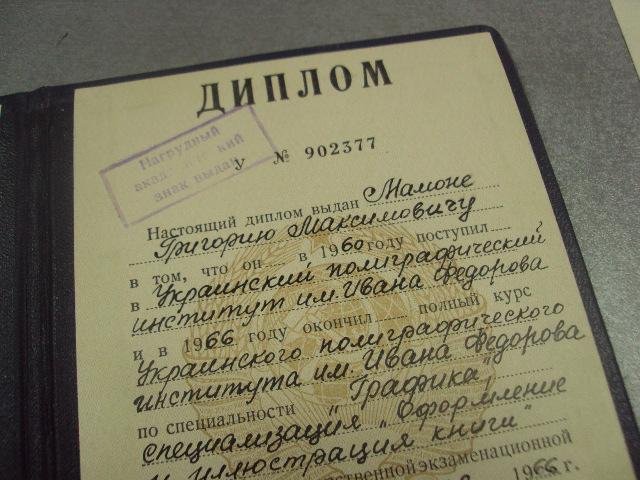 ДИПЛОМ
Нагрудный
академический
знак выдан
У № 902377
Настоящий диплом выдан Мамоне
Григорию Максимовичу
в том, что он в 1960 году поступил
в Украинский полиграфический
институт им. Ивана Федорова
и в 1966 году окончил полный курс
Украинского полиграфического
института им. Ивана Федорова
по специальности "Графика",
специализация "Оформление
и иллюстрация книги"
ственной экзаменационной
1966 г.